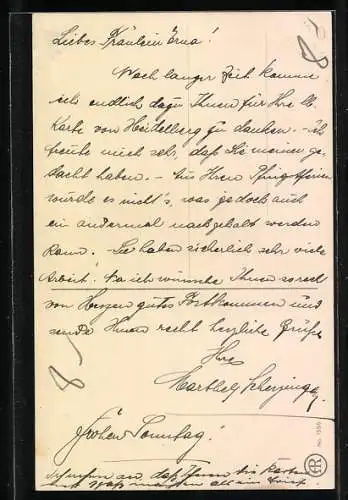 8
Liebes Fräulein Erna!
Nach langer Zeit komme
ich endlich dazu Ihnen für Ihre lb.
Karte von Heidelberg zu danken. - Ich
freute mich sehr, daß Sie meiner ge-
dacht haben. - Aus Ihren Pfingstferien
wurde es nicht's, was jedoch auch
ein andermal nachgeholt werden
kann. - Sie haben sicherlich sehr viele
Arbeit. Na ich wünsche Ihnen so recht
von Herzen gutes Fortkommen und
sende Ihnen recht herzliche Grüße
Ihre
Marthel
8
Frohen Sonntag!
an, daß Ihnen die Karten
Spaß machen
No. 1356